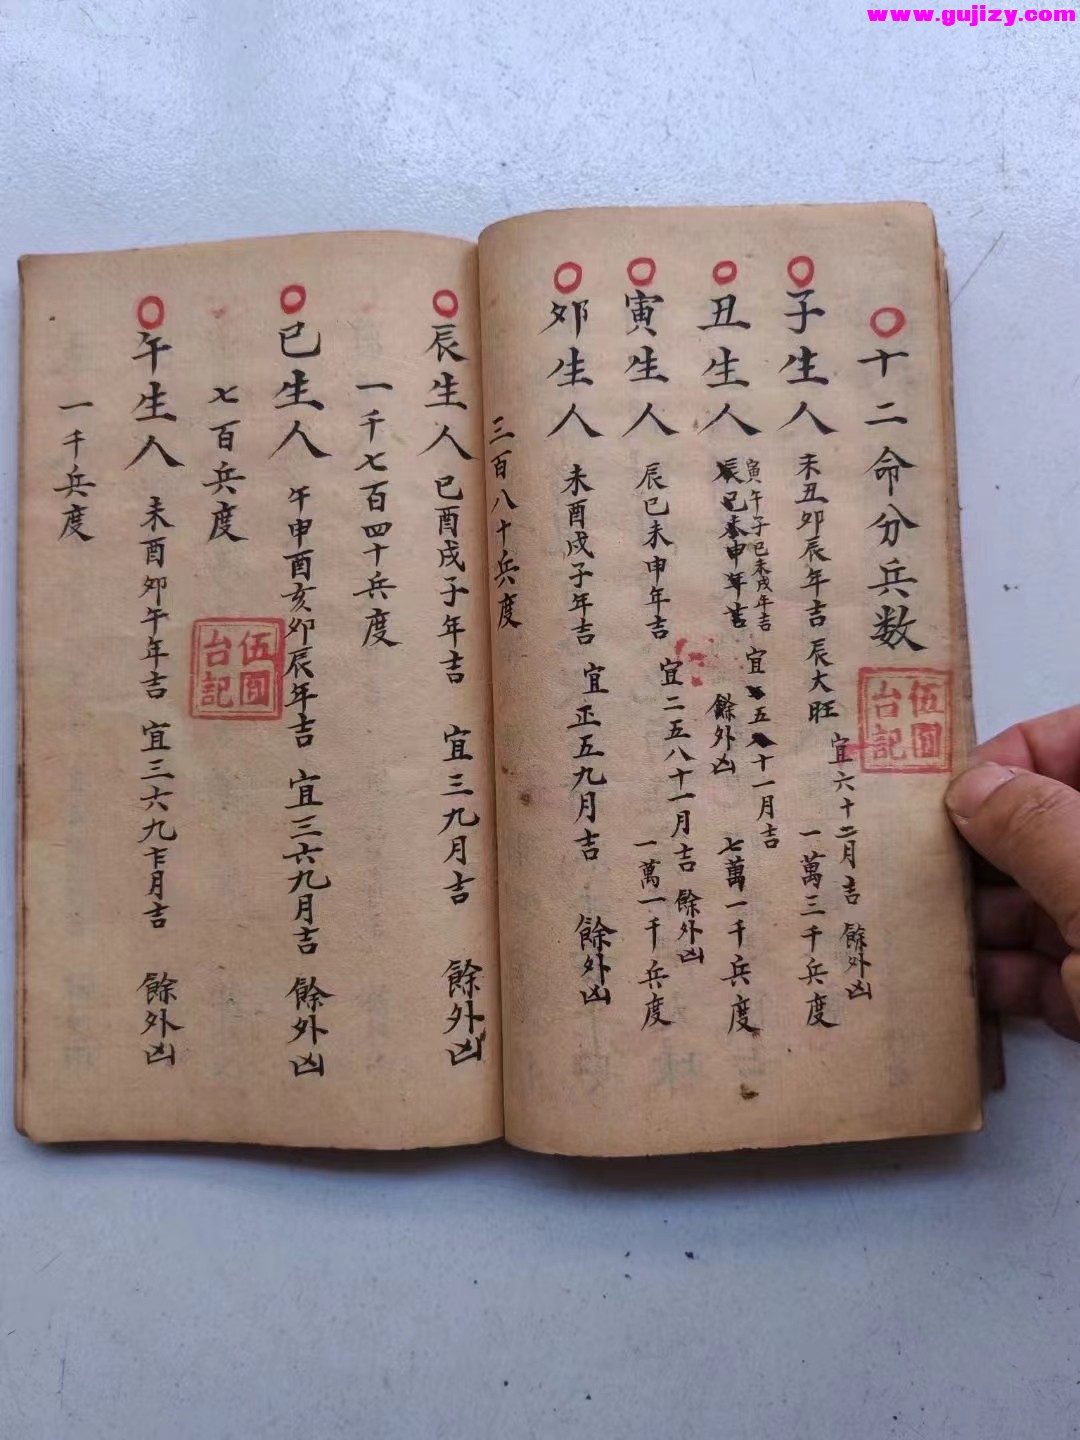 www.gujizy.com
十二命分兵数
伍
台記
子生人
未丑卯辰年吉 辰大旺
宜六十二月吉 餘外凶
一萬三千兵度
丑生人
寅午子巳未戌年吉
辰巳未申年吉
宜五八十一月吉
餘外凶
七萬一千兵度
寅生人
辰巳未申年吉
宜二五八十一月吉 餘外凶
一萬一千兵度
卯生人
未酉戌子年吉 宜正五九月吉 餘外凶
三百八十兵度
辰生人
巳酉戌子年吉 宜三九月吉 餘外凶
一千七百四十兵度
巳生人
午申酉亥卯辰年吉 宜三六九月吉 餘外凶
七百兵度
伍
台記
午生人
未酉卯午年吉 宜三六九月吉 餘外凶
一千兵度